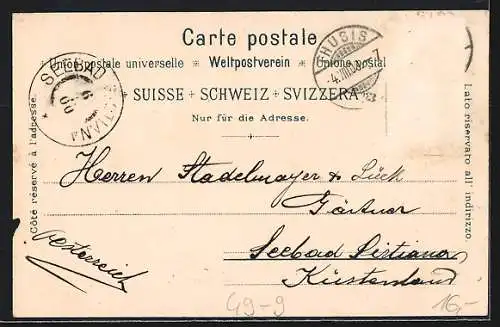 Carte postale.
Union postale universelle * Weltpostverein * Unione postal
SUISSE + SCHWEIZ + SVIZZERA
Nur für die Adresse.
THUSIS
SEEBAD
Côté réservé à l'adresse.
Lato riservato all' indirizzo.
Herren Stadelmayer & Lück
Gärtner
Seebad Sistiana
Küstenland
Oesterreich
49-9
16,-